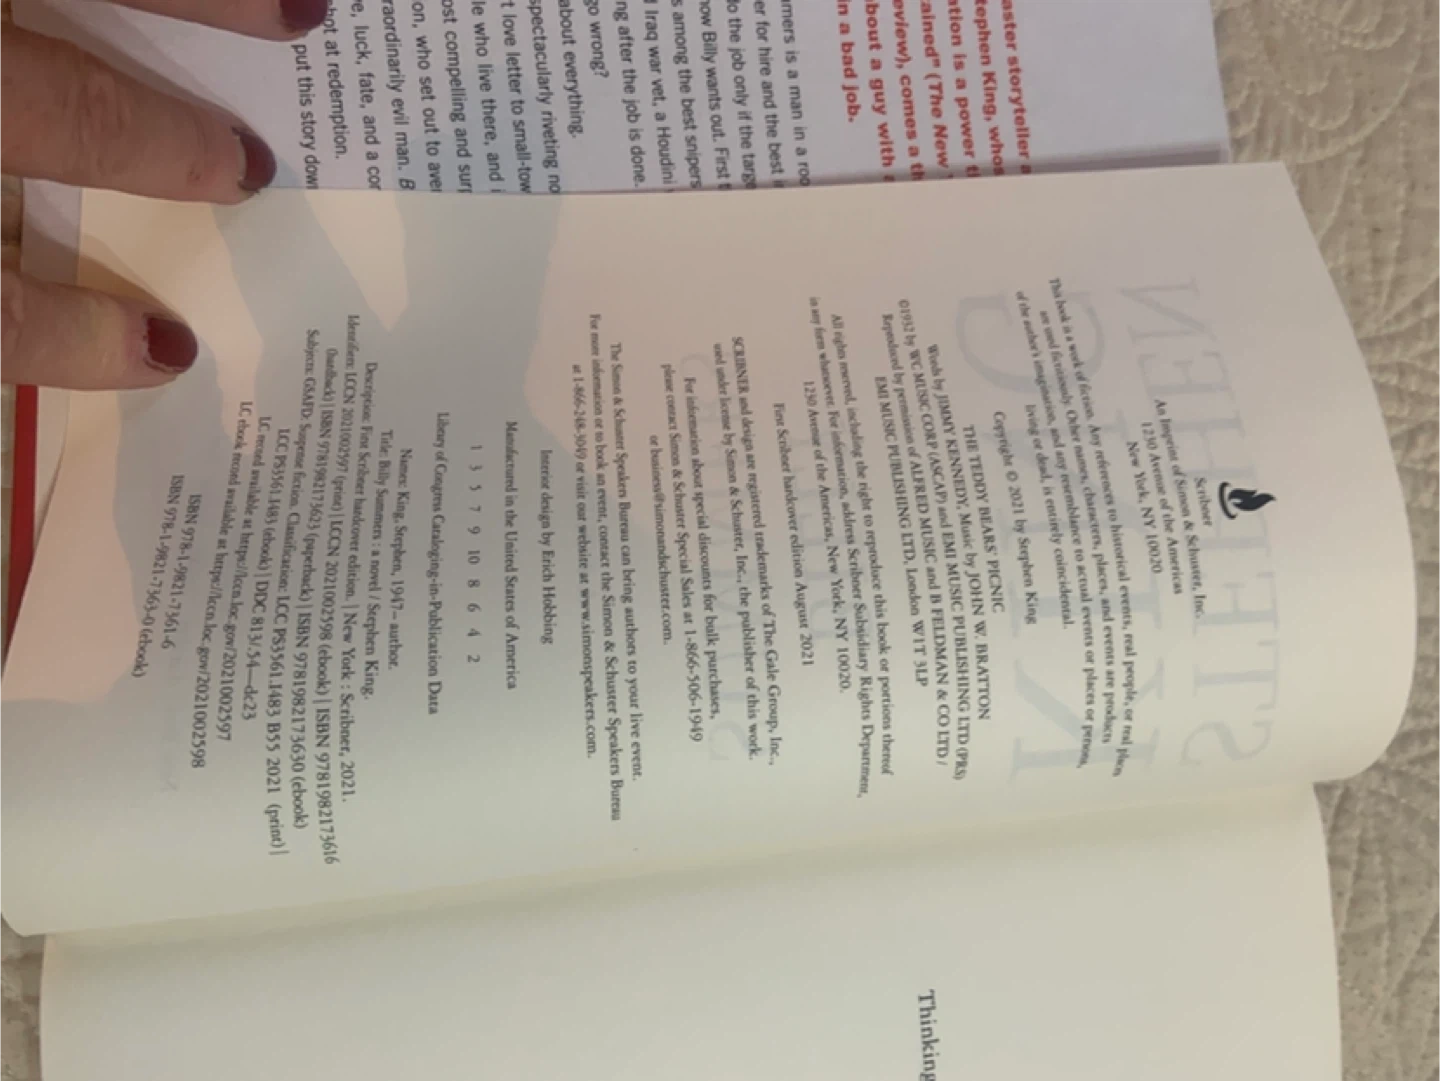 aster storyteller a
tephen King, whos
ation is a power t
ained" (The New
eview), comes a th
about a guy with a
in a bad job.
mers is a man in a roo
er for hire and the best i
do the job only if the targe
now Billy wants out. First t
s among the best snipers
d Iraq war vet, a Houdini
ng after the job is done.
go wrong?
about everything.
spectacularly riveting no
t love letter to small-tow
le who live there, and i
ost compelling and surr
on, who set out to aver
raordinarily evil man. B
ve, luck, fate, and a cor
hot at redemption.
put this story dow
Scribner
An Imprint of Simon & Schuster, Inc.
1230 Avenue of the Americas
New York, NY 10020
This book is a work of fiction. Any references to historical events, real people, or real places
are used fictitiously. Other names, characters, places, and events are products
of the author's imagination, and any resemblance to actual events or places or persons,
living or dead, is entirely coincidental.
Copyright © 2021 by Stephen King
THE TEDDY BEARS' PICNIC
Words by JIMMY KENNEDY, Music by JOHN W. BRATTON
©1932 by WC MUSIC CORP (ASCAP) and EMI MUSIC PUBLISHING LTD (PRS)
Reproduced by permission of ALFRED MUSIC and B FELDMAN & CO LTD /
EMI MUSIC PUBLISHING LTD, London W1T 3LP
All rights reserved, including the right to reproduce this book or portions thereof
in any form whatsoever. For information, address Scribner Subsidiary Rights Department,
1230 Avenue of the Americas, New York, NY 10020.
First Scribner hardcover edition August 2021
SCRIBNER and design are registered trademarks of The Gale Group, Inc.,
used under license by Simon & Schuster, Inc., the publisher of this work.
For information about special discounts for bulk purchases,
please contact Simon & Schuster Special Sales at 1-866-506-1949
or business@simonandschuster.com.
The Simon & Schuster Speakers Bureau can bring authors to your live event.
For more information or to book an event, contact the Simon & Schuster Speakers Bureau
at 1-866-248-3049 or visit our website at www.simonspeakers.com.
Interior design by Erich Hobbing
Manufactured in the United States of America
1 3 5 7 9 10 8 6 4 2
Library of Congress Cataloging-in-Publication Data
Names: King, Stephen, 1947– author.
Title: Billy Summers : a novel / Stephen King.
Description: First Scribner hardcover edition. | New York : Scribner, 2021.
Identifiers: LCCN 2021002597 (print) | LCCN 2021002598 (ebook) | ISBN 9781982173616
(hardback) | ISBN 9781982173623 (paperback) | ISBN 9781982173630 (ebook)
Subjects: GSAFD: Suspense fiction. Classification: LCC PS3561.I483 B55 2021 (print) |
LCC PS3561.I483 (ebook) | DDC 813/.54—dc23
LC record available at https://lccn.loc.gov/2021002597
LC ebook record available at https://lccn.loc.gov/2021002598
ISBN 978-1-9821-7361-6
ISBN 978-1-9821-7363-0 (ebook)
Thinking